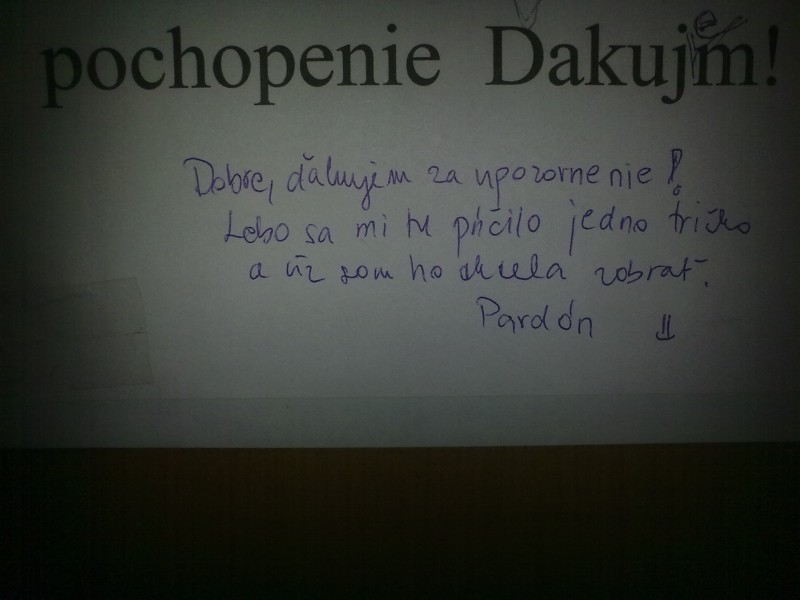 pochopenie Dakujem!
Dobre, ďakujem za upozornenie!
Lebo sa mi tu páčilo jedno tričko
a už som ho chcela zobrať.
Pardón